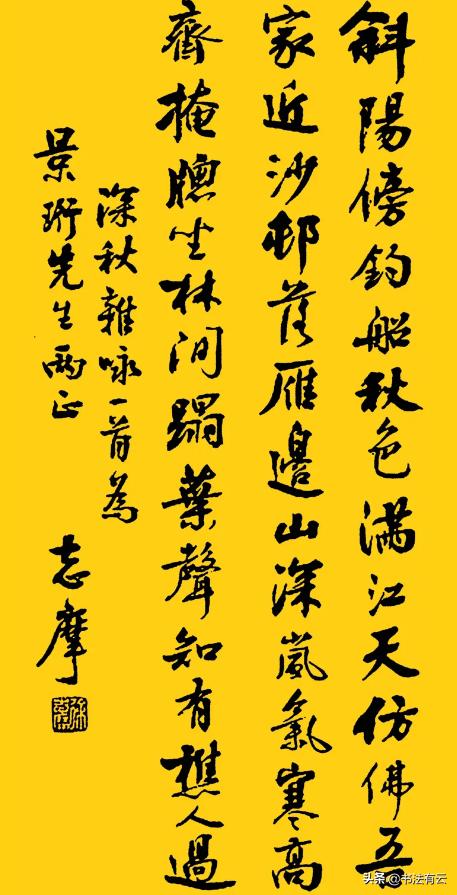 斜陽傍釣船秋色滿江天仿佛吾
家近沙邨落雁邊山深嵐氣寒高
齋掩牕坐林間蹋葉聲知有樵人過
深秋雜咏一首為
景珩先生兩正
志摩
头条 @书法有云